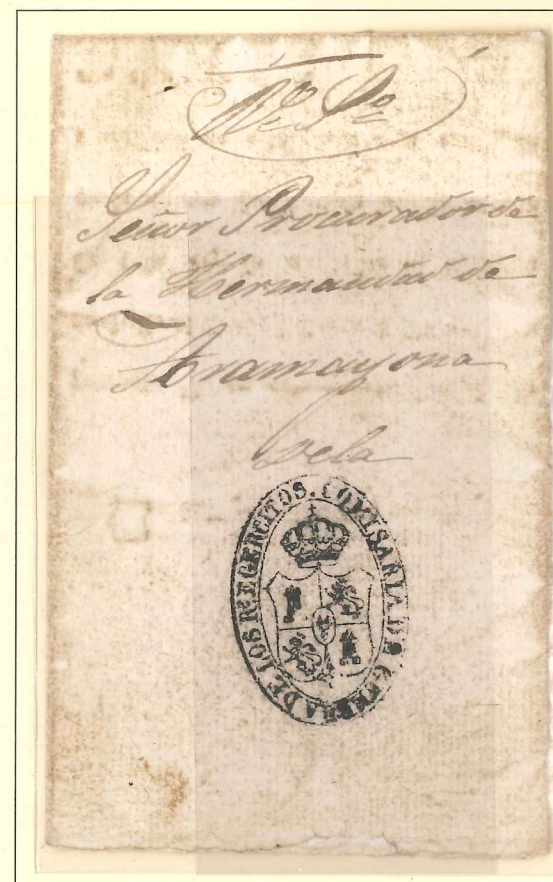 Señor Procurador de
la Hermandad de
Aramayona
COMISARIA DE GUERRA DE LOS Rs. EGERCITOS.